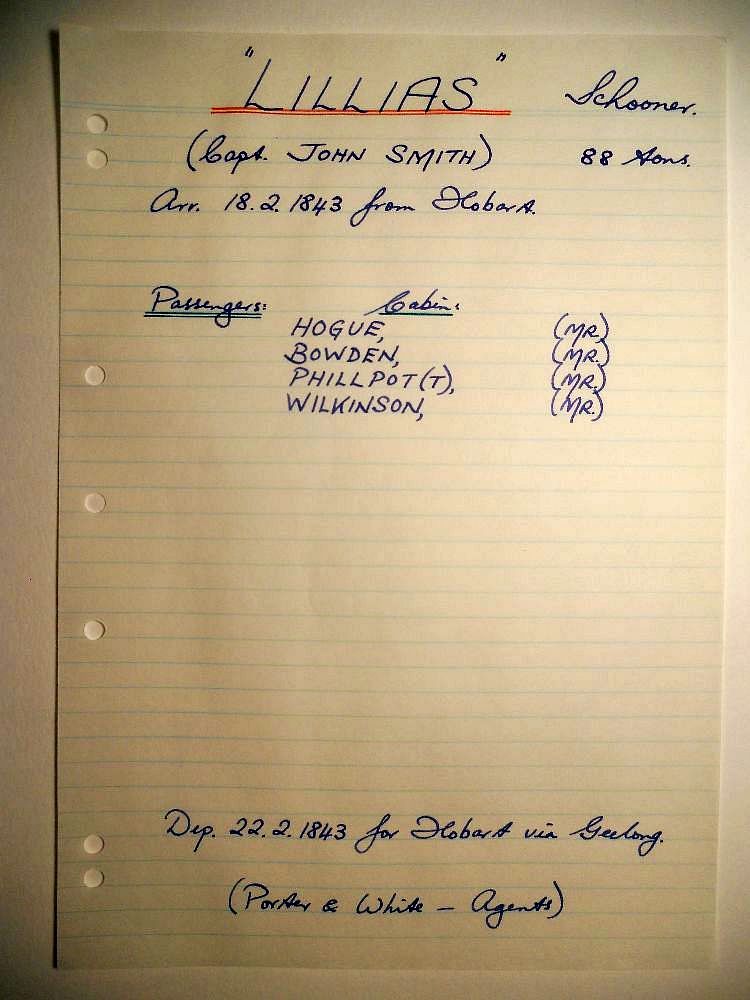 "LILLIAS" Schooner.
(Capt. JOHN SMITH) 88 tons.
Arr. 18.2.1843 from Hobart.
Passengers: Cabin:
HOGUE, (MR.)
BOWDEN, (MR.)
PHILLPOT(T), (MR.)
WILKINSON, (MR.)
Dep. 22.2.1843 for Hobart via Geelong.
(Porter & White - Agents)